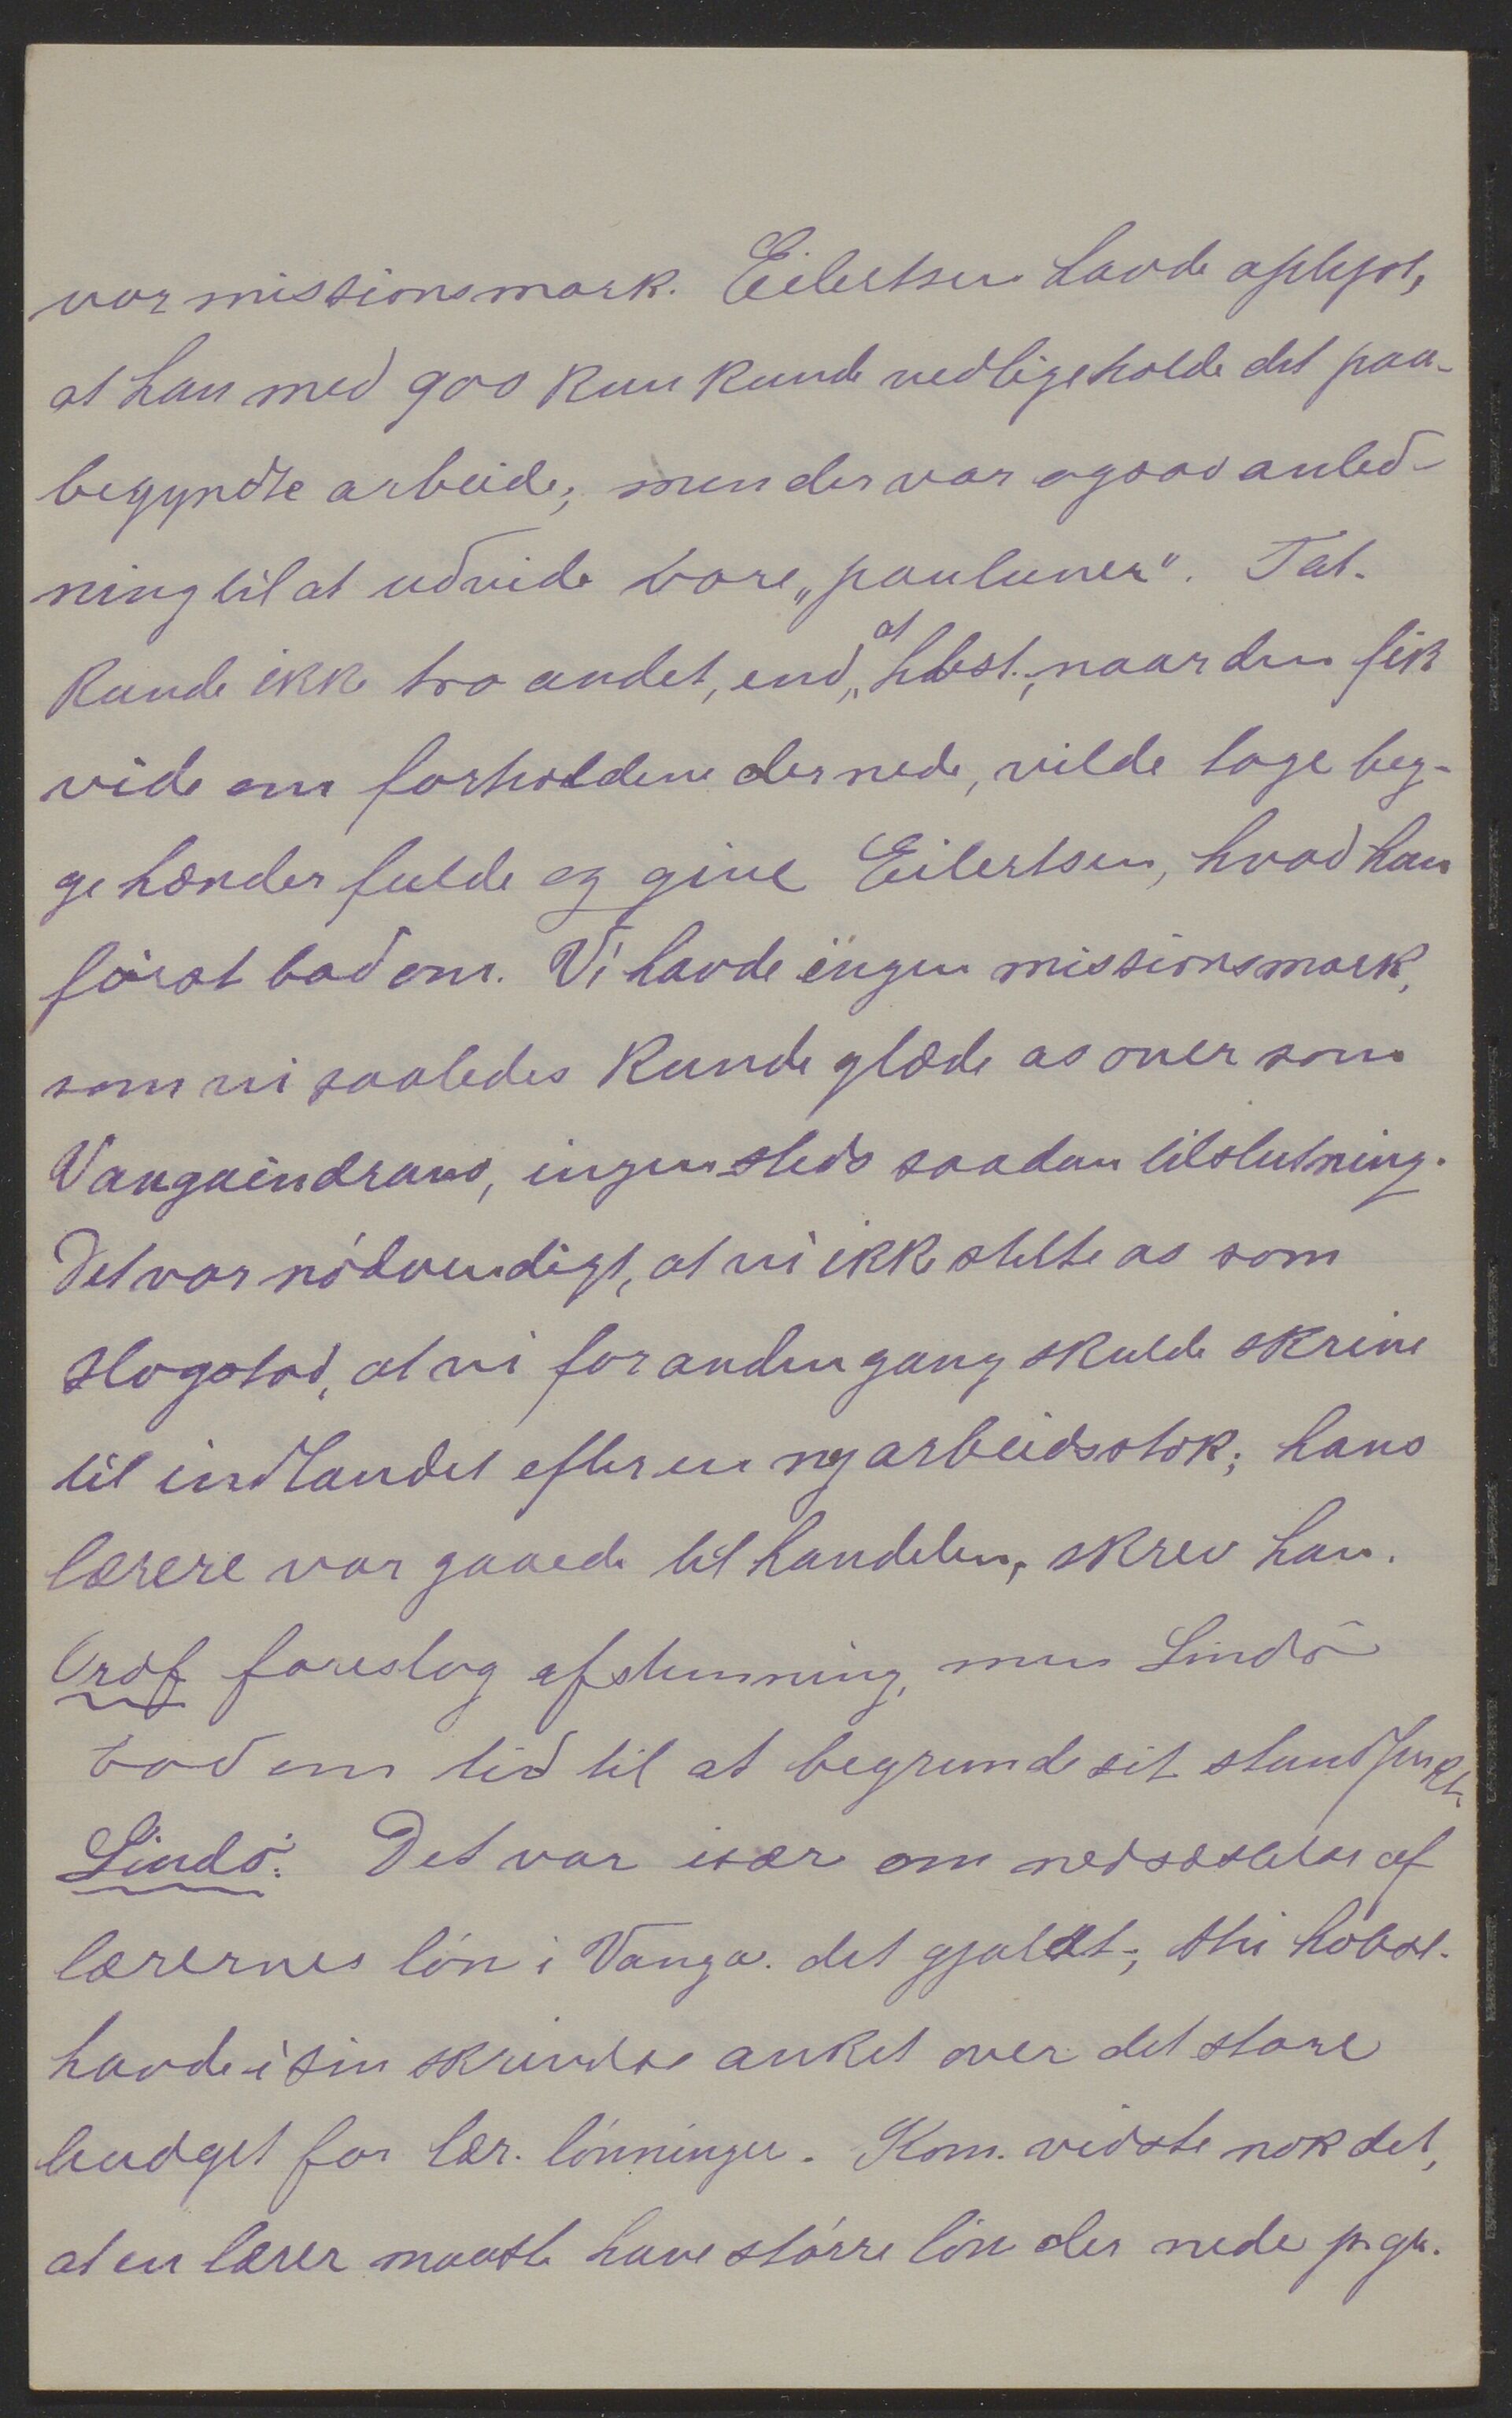 vor missionsmark. Eilertsen havde oplyst,
at han med 900 kun kunde vedligeholde det paa-
begyndte arbeide; men der var ogsaa anled-
ning til at udvide vore „pauluner". Tal.
kunde ikke tro andet, end, at hbst., naar den fik
vide om forholdene dernede, vilde tage beg-
ge hænder fulde og give Eilertsen, hvad han
först bad om. Vi havde ingen missionsmark,
som vi saaledes kunde glæde os over som
Vangaindrano, ingensteds saadan tilslutning.
Det var nödvendigt, at vi ikke stilte os som
Hogstad, at vi for anden gang skulde skrive
til indlandet efter en ny arbeidsstok; hans
lærere var gaaede til handelen, skrev han.
Ordf foreslog afstemning, men Lindö
bad om tid til at begrunde sit standpunkt.
Lindö: Det var især om nedsættelse af
lærernes lön i Vanga. det gjaldt; thi hbst.
havde i sin skrivelse anket over det store
budget for lær. lönninger. Kom. vidste nok det,
at en lærer maatte have större lön der nede p. gr.